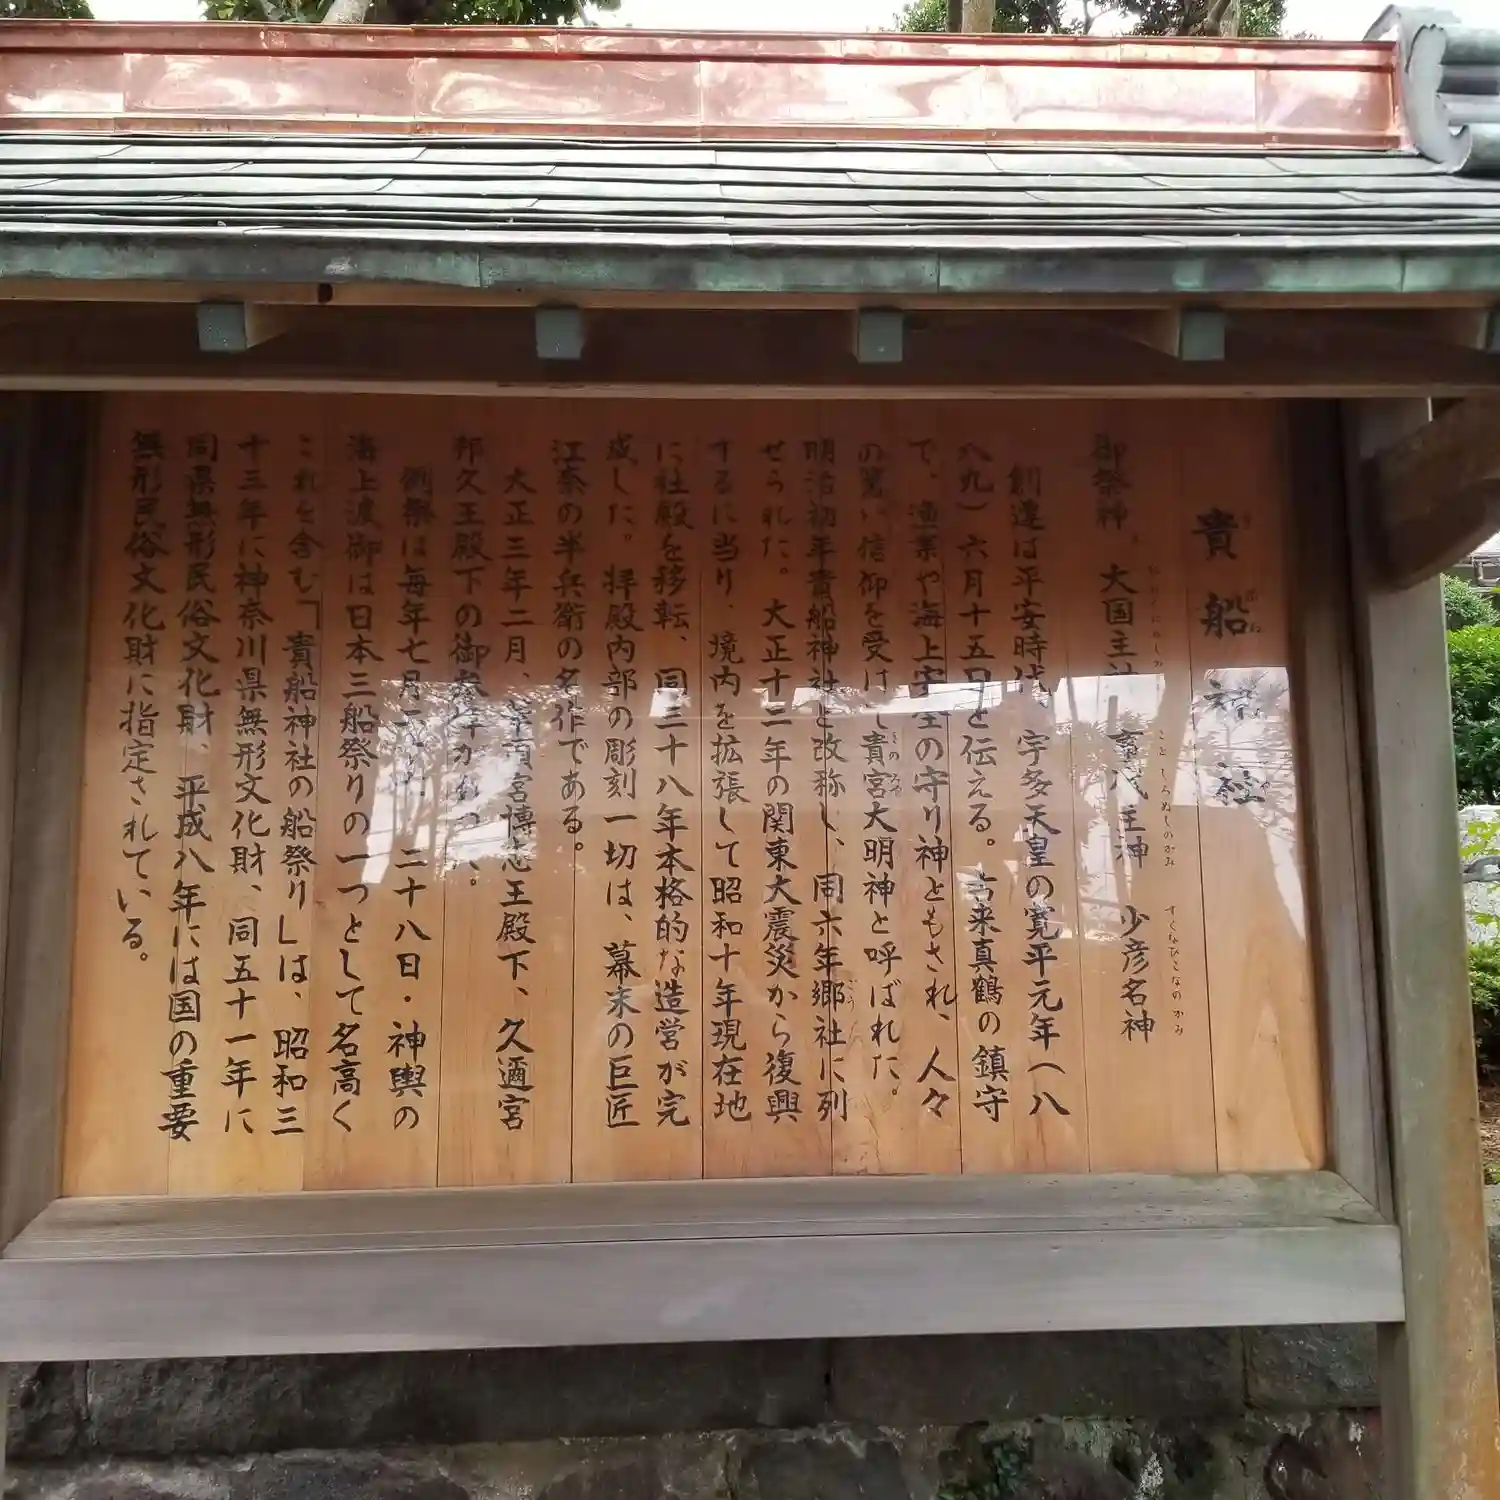 貴船神社
御祭神 大国主神 事代主神 少彦名神
創建は平安時代、宇多天皇の寛平元年(八
八九)六月十五日と伝える。古来真鶴の鎮守
で、漁業や海上安全の守り神ともされ、人々
の篤い信仰を受けし貴宮大明神と呼ばれた。
明治初年貴船神社と改称し、同六年郷社に列
せられた。大正十二年の関東大震災から復興
するに当り、境内を拡張して昭和十年現在地
に社殿を移転、同三十八年本格的な造営が完
成した。拝殿内部の彫刻一切は、幕末の巨匠
江奈の半兵衛の名作である。
大正三年二月、華頂宮博忠王殿下、久邇宮
邦久王殿下の御参拝があつた。
例祭は毎年七月二十七、二十八日・神輿の
海上渡御は日本三船祭りの一つとして名高く
これを含む「貴船神社の船祭り」は、昭和三
十三年に神奈川県無形文化財、同五十一年に
同県無形民俗文化財、平成八年には国の重要
無形民俗文化財に指定されている。